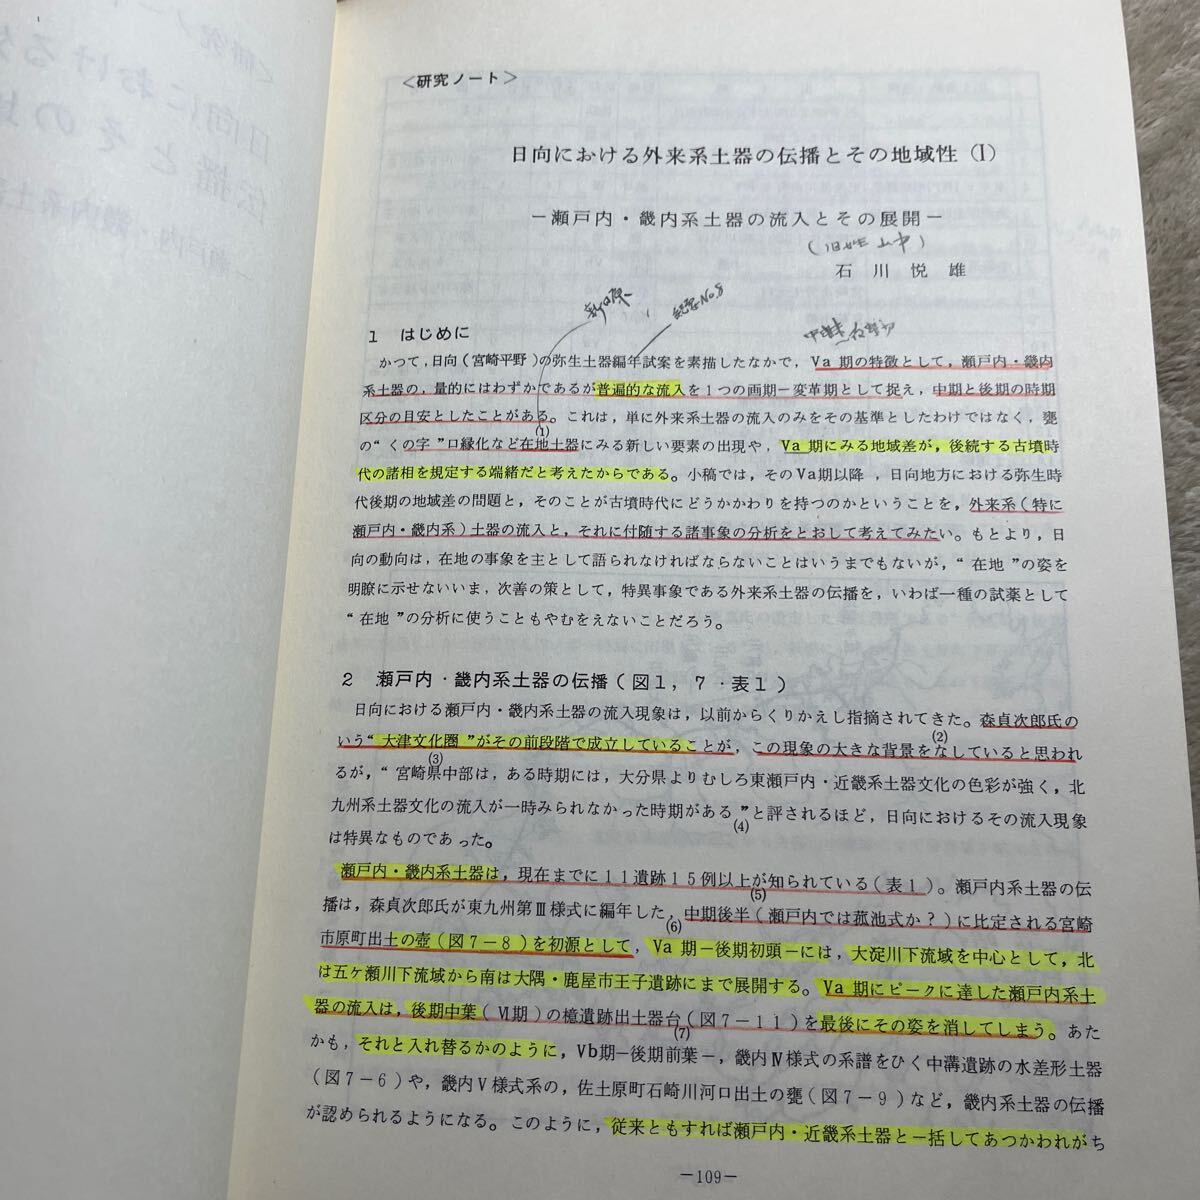 ＜研究ノート＞
日向における外来系土器の伝播とその地域性（Ⅰ）
－瀬戸内・畿内系土器の流入とその展開－
（旧姓 山中）
石川悦雄
新田原
No.8
1 はじめに
かつて，日向（宮崎平野）の弥生土器編年試案を素描したなかで，Ⅴa 期の特徴として，瀬戸内・畿内
系土器の，量的にはわずかであるが普遍的な流入を１つの画期－変革期として捉え，中期と後期の時期
区分の目安としたことがある。これは，単に外来系土器の流入のみをその基準としたわけではなく，甕
(1)
の“くの字”口縁化など在地土器にみる新しい要素の出現や，Ⅴa 期にみる地域差が，後続する古墳時
代の諸相を規定する端緒だと考えたからである。小稿では，そのⅤa期以降，日向地方における弥生時
代後期の地域差の問題と，そのことが古墳時代にどうかかわりを持つのかということを，外来系（特に
瀬戸内・畿内系）土器の流入と，それに付随する諸事象の分析をとおして考えてみたい。もとより，日
向の動向は，在地の事象を主として語られなければならないことはいうまでもないが，“在地”の姿を
明瞭に示せないいま，次善の策として，特異事象である外来系土器の伝播を，いわば一種の試薬として
“在地”の分析に使うこともやむをえないことだろう。
2 瀬戸内・畿内系土器の伝播（図１，７・表１）
日向における瀬戸内・畿内系土器の流入現象は，以前からくりかえし指摘されてきた。森貞次郎氏の
(2)
いう“大津文化圏”がその前段階で成立していることが，この現象の大きな背景をなしていると思われ
(3)
るが，“宮崎県中部は，ある時期には，大分県よりむしろ東瀬戸内・近畿系土器文化の色彩が強く，北
九州系土器文化の流入が一時みられなかった時期がある”と評されるほど，日向におけるその流入現象
(4)
は特異なものであった。
瀬戸内・畿内系土器は，現在までに１１遺跡１５例以上が知られている（表１）。瀬戸内系土器の伝
(5)
播は，森貞次郎氏が東九州第Ⅲ様式に編年した，中期後半（瀬戸内では菰池式か？）に比定される宮崎
(6)
市原町出土の壺（図７－８）を初源として，Ⅴa 期－後期初頭－には，大淀川下流域を中心として，北
は五ヶ瀬川下流域から南は大隅・鹿屋市王子遺跡にまで展開する。Ⅴa 期にピークに達した瀬戸内系土
器の流入は，後期中葉（Ⅵ期）の檍遺跡出土器台（図７－１１）を最後にその姿を消してしまう。あた
(7)
かも，それと入れ替るかのように，Ⅴb期－後期前葉－，畿内Ⅳ様式の系譜をひく中溝遺跡の水差形土器
（図７－６）や，畿内Ⅴ様式系の，佐土原町石崎川河口出土の甕（図７－９）など，畿内系土器の伝播
が認められるようになる。このように，従来ともすれば瀬戸内・近畿系土器と一括してあつかわれがち
－109－